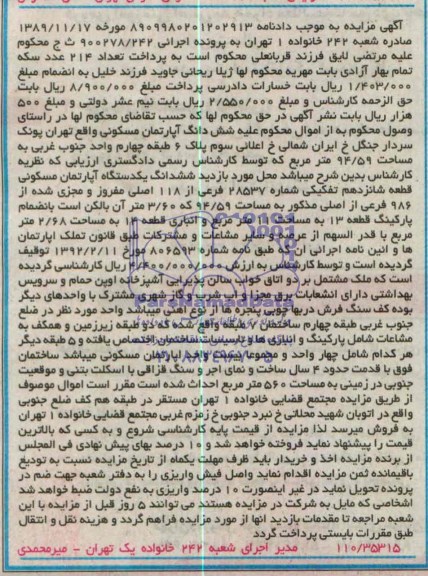 آگهی مزایده به موجب دادنامه ۸۹۰۹۹۸۰۲۰۱۲۰۲۹۱۳ مورخه ۱۳۸۹/۱۱/۱۷
صادره شعبه ۲۴۲ خانواده ۱ تهران به پرونده اجرائی ۹۰۰۲۷۸/۲۴۲ ث ج محکوم
علیه مرتضی لایق فرزند قربانعلی محکوم است به پرداخت تعداد ۲۱۴ عدد سکه
تمام بهار آزادی بابت مهریه محکوم لها ژیلا ریحانی جاوید فرزند خلیل به انضمام مبلغ
۱/۴۰۳/۰۰۰ ریال بابت خسارات دادرسی پرداخت مبلغ ۸/۹۰۰/۰۰۰ ریال بابت
حق الزحمه کارشناس و مبلغ ۲/۵۵۰/۰۰۰ ریال بابت نیم عشر دولتی و مبلغ ۵۰۰
هزار ریال بابت نشر آگهی در حق محکوم لها که حسب تقاضای محکوم لها در راستای
وصول محکوم به از اموال محکوم علیه شش دانگ آپارتمان مسکونی واقع تهران پونک
سردار جنگل خ ایران شمالی خ اعلائی سوم پلاک ۶ طبقه چهارم واحد جنوب غربی به
مساحت ۹۴/۵۹ متر مربع که توسط کارشناس رسمی دادگستری ارزیابی که نظریه
کارشناس بدین شرح میباشد محل مورد بازدید ششدانگ یکدستگاه آپارتمان مسکونی
قطعه شانزدهم تفکیکی شماره ۲۸۵۳۷ فرعی از ۱۱۸ اصلی مفروز و مجزی شده از
۹۸۶ فرعی از اصلی مذکور به مساحت ۹۴/۵۹ که ۳/۶۰ متر آن بالکن است بانضمام
پارکینگ قطعه ۱۳ به مساحت متر مربع و انباری قطعه ۱۲ به مساحت ۲/۶۸ متر
مربع با قدر السهم از عرصه و سایر مشاعات و مشترکات طبق قانون تملک اپارتمان
ها و ائین نامه اجرائی ان که طبق نامه شماره ۸۰۶۵۹۳ مورخ ۱۳۹۲/۲/۱۱ توقیف
گردیده است و توسط کارشناس به ارزش ریال کارشناسی گردیده
است که ملک مشتمل بر دو اتاق خواب سالن پذیرایی آشپزخانه اوپن حمام و سرویس
بهداشتی دارای انشعابات برق مجزا و آب شرب و گاز شهری مشترک با واحدهای دیگر
بوده کف سنگ فرش دربها چوبی پنجره ها از نوع آهنی میباشد واحد مورد نظر در ضلع
جنوب غربی طبقه چهارم ساختمان ۷ طبقه واقع شده که دو طبقه زیرزمین و همکف به
مشاعات شامل پارکینگ و انباری ها و تاسیسات ساختمان اختصاص یافته و ۵ طبقه دیگر
هر کدام شامل چهار واحد و مجموعا واحد اپارتمان مسکونی میباشد ساختمان
فوق با قدمت حدود ۴ سال ساخت و نمای اجر و سنگ قزاقی با اسکلت بتنی و موقعیت
جنوبی در زمینی به مساحت ۵۶۰ متر مربع احداث شده است مقرر است اموال موصوف
از طریق مزایده مجتمع قضایی خانواده ۱ تهران مستقر در طبقه هم کف ضلع جنوبی
واقع در اتوبان شهید محلاتی خ نبرد جنوبی خ زمزم غربی مجتمع قضایی خانواده ۱ تهران
به فروش میرسد لذا مزایده از قیمت پایه کارشناسی شروع و به کسی که بالاترین
قیمت را پیشنهاد نماید فروخته خواهد شد و ۱۰ درصد بهای پیش نهادی فی المجلس
از برنده مزایده اخذ و خریدار باید ظرف مهلت یکماه از تاریخ مزایده نسبت به تودیع
باقیمانده ثمن مزایده اقدام نماید واصل فیش واریزی را به دفتر شعبه جهت ضم در
پرونده تحویل نماید در غیر اینصورت ۱۰ درصد واریزی به نفع دولت ضبط خواهد شد
اشخاصی که مایل به شرکت در مزایده هستند می توانند ۵ روز قبل از مزایده با این
شعبه مراجعه تا مقدمات بازدید انها از مورد مزایده فراهم گردد و هزینه نقل و انتقال
طبق مقررات بایستی پرداخت گردد
۱۱۰/۳۵۳۱۵ مدیر اجرای شعبه ۲۴۲ خانواده یک تهران - میرمحمدی